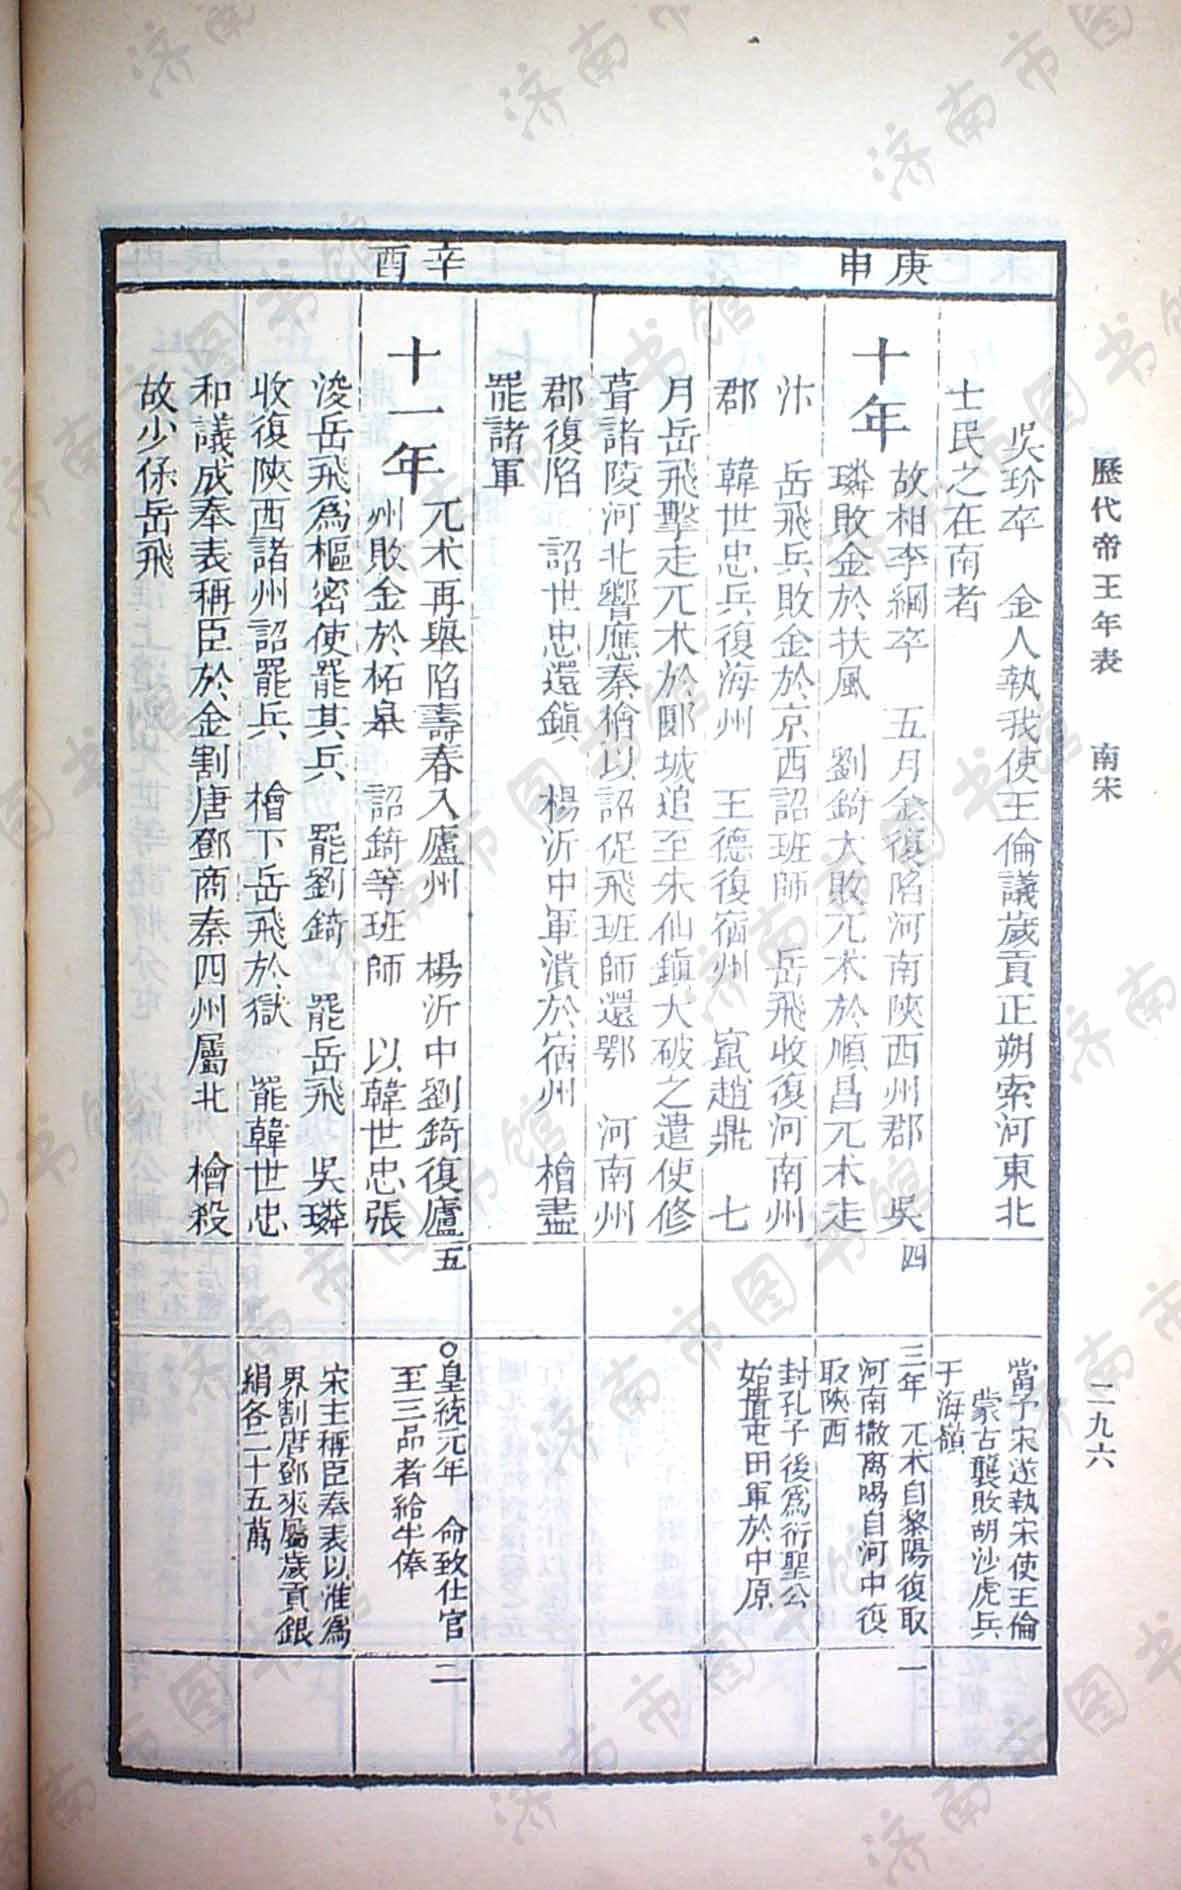 歷代帝王年表　南宋
二九六
庚申
吳玠卒　金人執我使王倫議歲貢正朔索河東北
士民之在南者
當予宋遂執宋使王倫
蒙古襲敗胡沙虎兵
于海嶺
十年
故相李綱卒　五月金復陷河南陝西州郡　吳
璘敗金於扶風　劉錡大敗兀朮於順昌兀朮走
汴　岳飛兵敗金於京西詔班師　岳飛收復河南州
郡　韓世忠兵復海州　王德復宿州　竄趙鼎　七
月岳飛擊走兀朮於郾城追至朱仙鎮大破之遣使修
葺諸陵河北響應秦檜以詔促飛班師還鄂　河南州
郡復陷　詔世忠還鎮　楊沂中軍潰於宿州　檜盡
罷諸軍
四
三年　兀朮自黎陽復取
河南撒离喝自河中復
取陝西
封孔子後爲衍聖公
始置屯田軍於中原
一
辛酉
十一年
兀朮再舉陷壽春入廬州　楊沂中劉錡復廬
州敗金於柘皋　詔錡等班師　以韓世忠張
浚岳飛爲樞密使罷其兵　罷劉錡　罷岳飛　吳璘
收復陝西諸州詔罷兵　檜下岳飛於獄　罷韓世忠
和議成奉表稱臣於金割唐鄧商秦四州屬北　檜殺
故少保岳飛
五
○皇統元年　命致仕官
至三品者給半俸
宋主稱臣奉表以淮爲
界割唐鄧來屬歲貢銀
絹各二十五萬
二
济南市图书馆